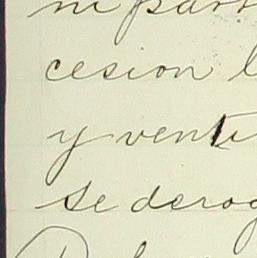 ni part
cesion l
y venti
se derog